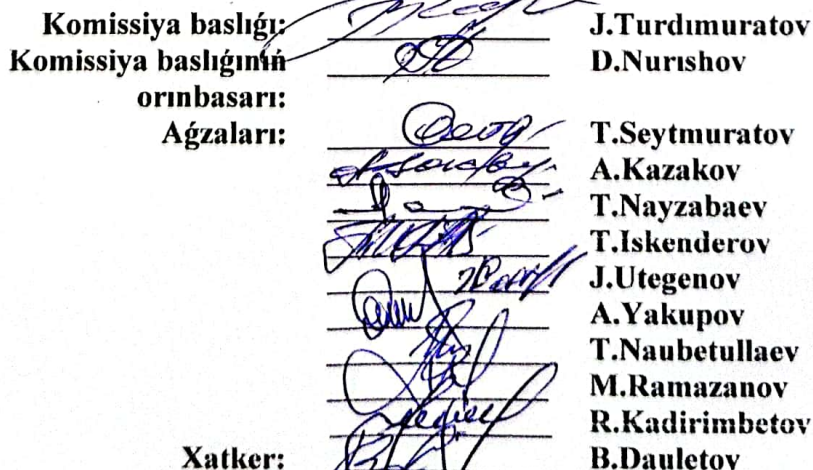 Komissiya baslıǵı: J.Turdımuratov
Komissiya baslıǵınıń D.Nurıshov
orınbasarı:
Aǵzaları: T.Seytmuratov
A.Kazakov
T.Nayzabaev
T.Iskenderov
J.Utegenov
A.Yakupov
T.Naubetullaev
M.Ramazanov
R.Kadirimbetov
Xatker: B.Dauletov